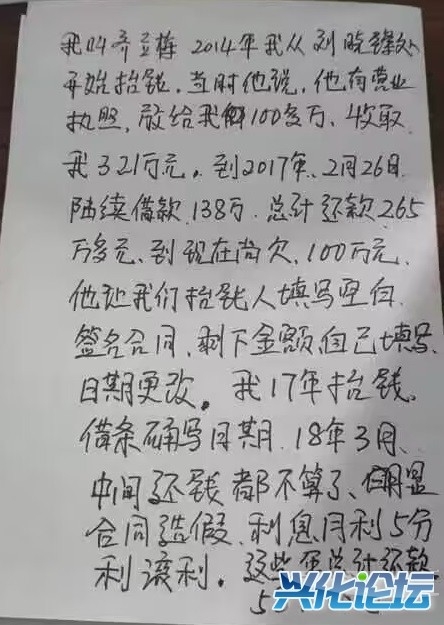 我叫齐立栋 2014年我从刘晓锋处
开始抬钱，当时他说，他有营业
执照，放给我100多万、收取
我321万元。到2017年、2月26日
陆续借款138万．总计还款265
万多元、到现在尚欠、100万元、
他让我们抬钱人填写空白
签名合同、剩下金额自己填写、
日期更改。我17年抬钱、
借条确写日期、18年3月、
中间还钱都不算了、明显
合同造假、利息月利5分
利滚利。这些年总计还款
5
兴化论坛